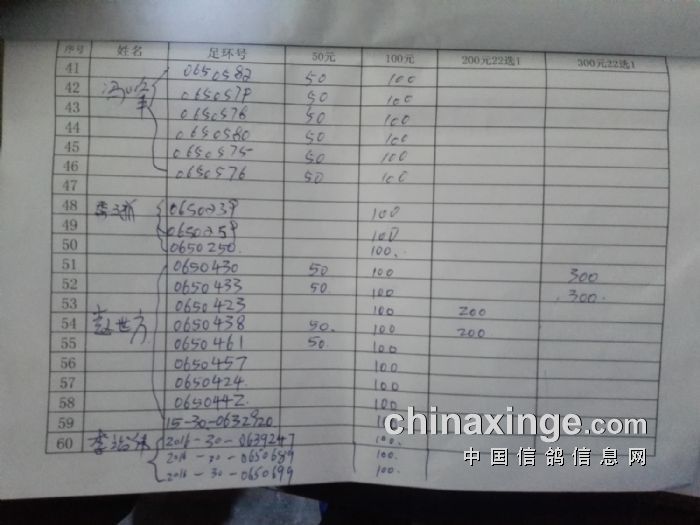 序号 姓名 足环号 50元 100元 200元22选1 300元22选1
41 0650582 50 100
42 0650578 50 100
43 0650576 50 100
44 0650580 50 100
45 0650575 50 100
46 0650576 50 100
47
48 0650239 100
49 0650259 100
50 0650250. 100.
51 0650430 50 100 300
52 0650433 50 100 300.
53 0650423 100 200
54 赵世方 0650438 50. 100 200
55 0650461 50. 100
56 0650457 100
57 0650424. 100
58 0650442. 100
59 15-30-0632920
60 2016-30-0639247 100.
2016-30-0650689 100.
2016-30-0650699 100.
chinaxinge.com
中国信鸽信息网